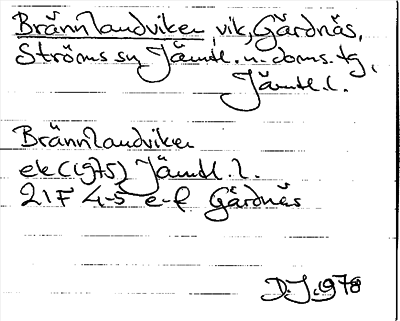 Brännlandviken, vik, Gärdnäs,
Ströms sn Jämtl. n. doms. tg,
Jämtl. l.
Brännlandviken
ek (1975) Jämtl. l.
21F 4-5 e-f Gärdnäs
D.J. 1978